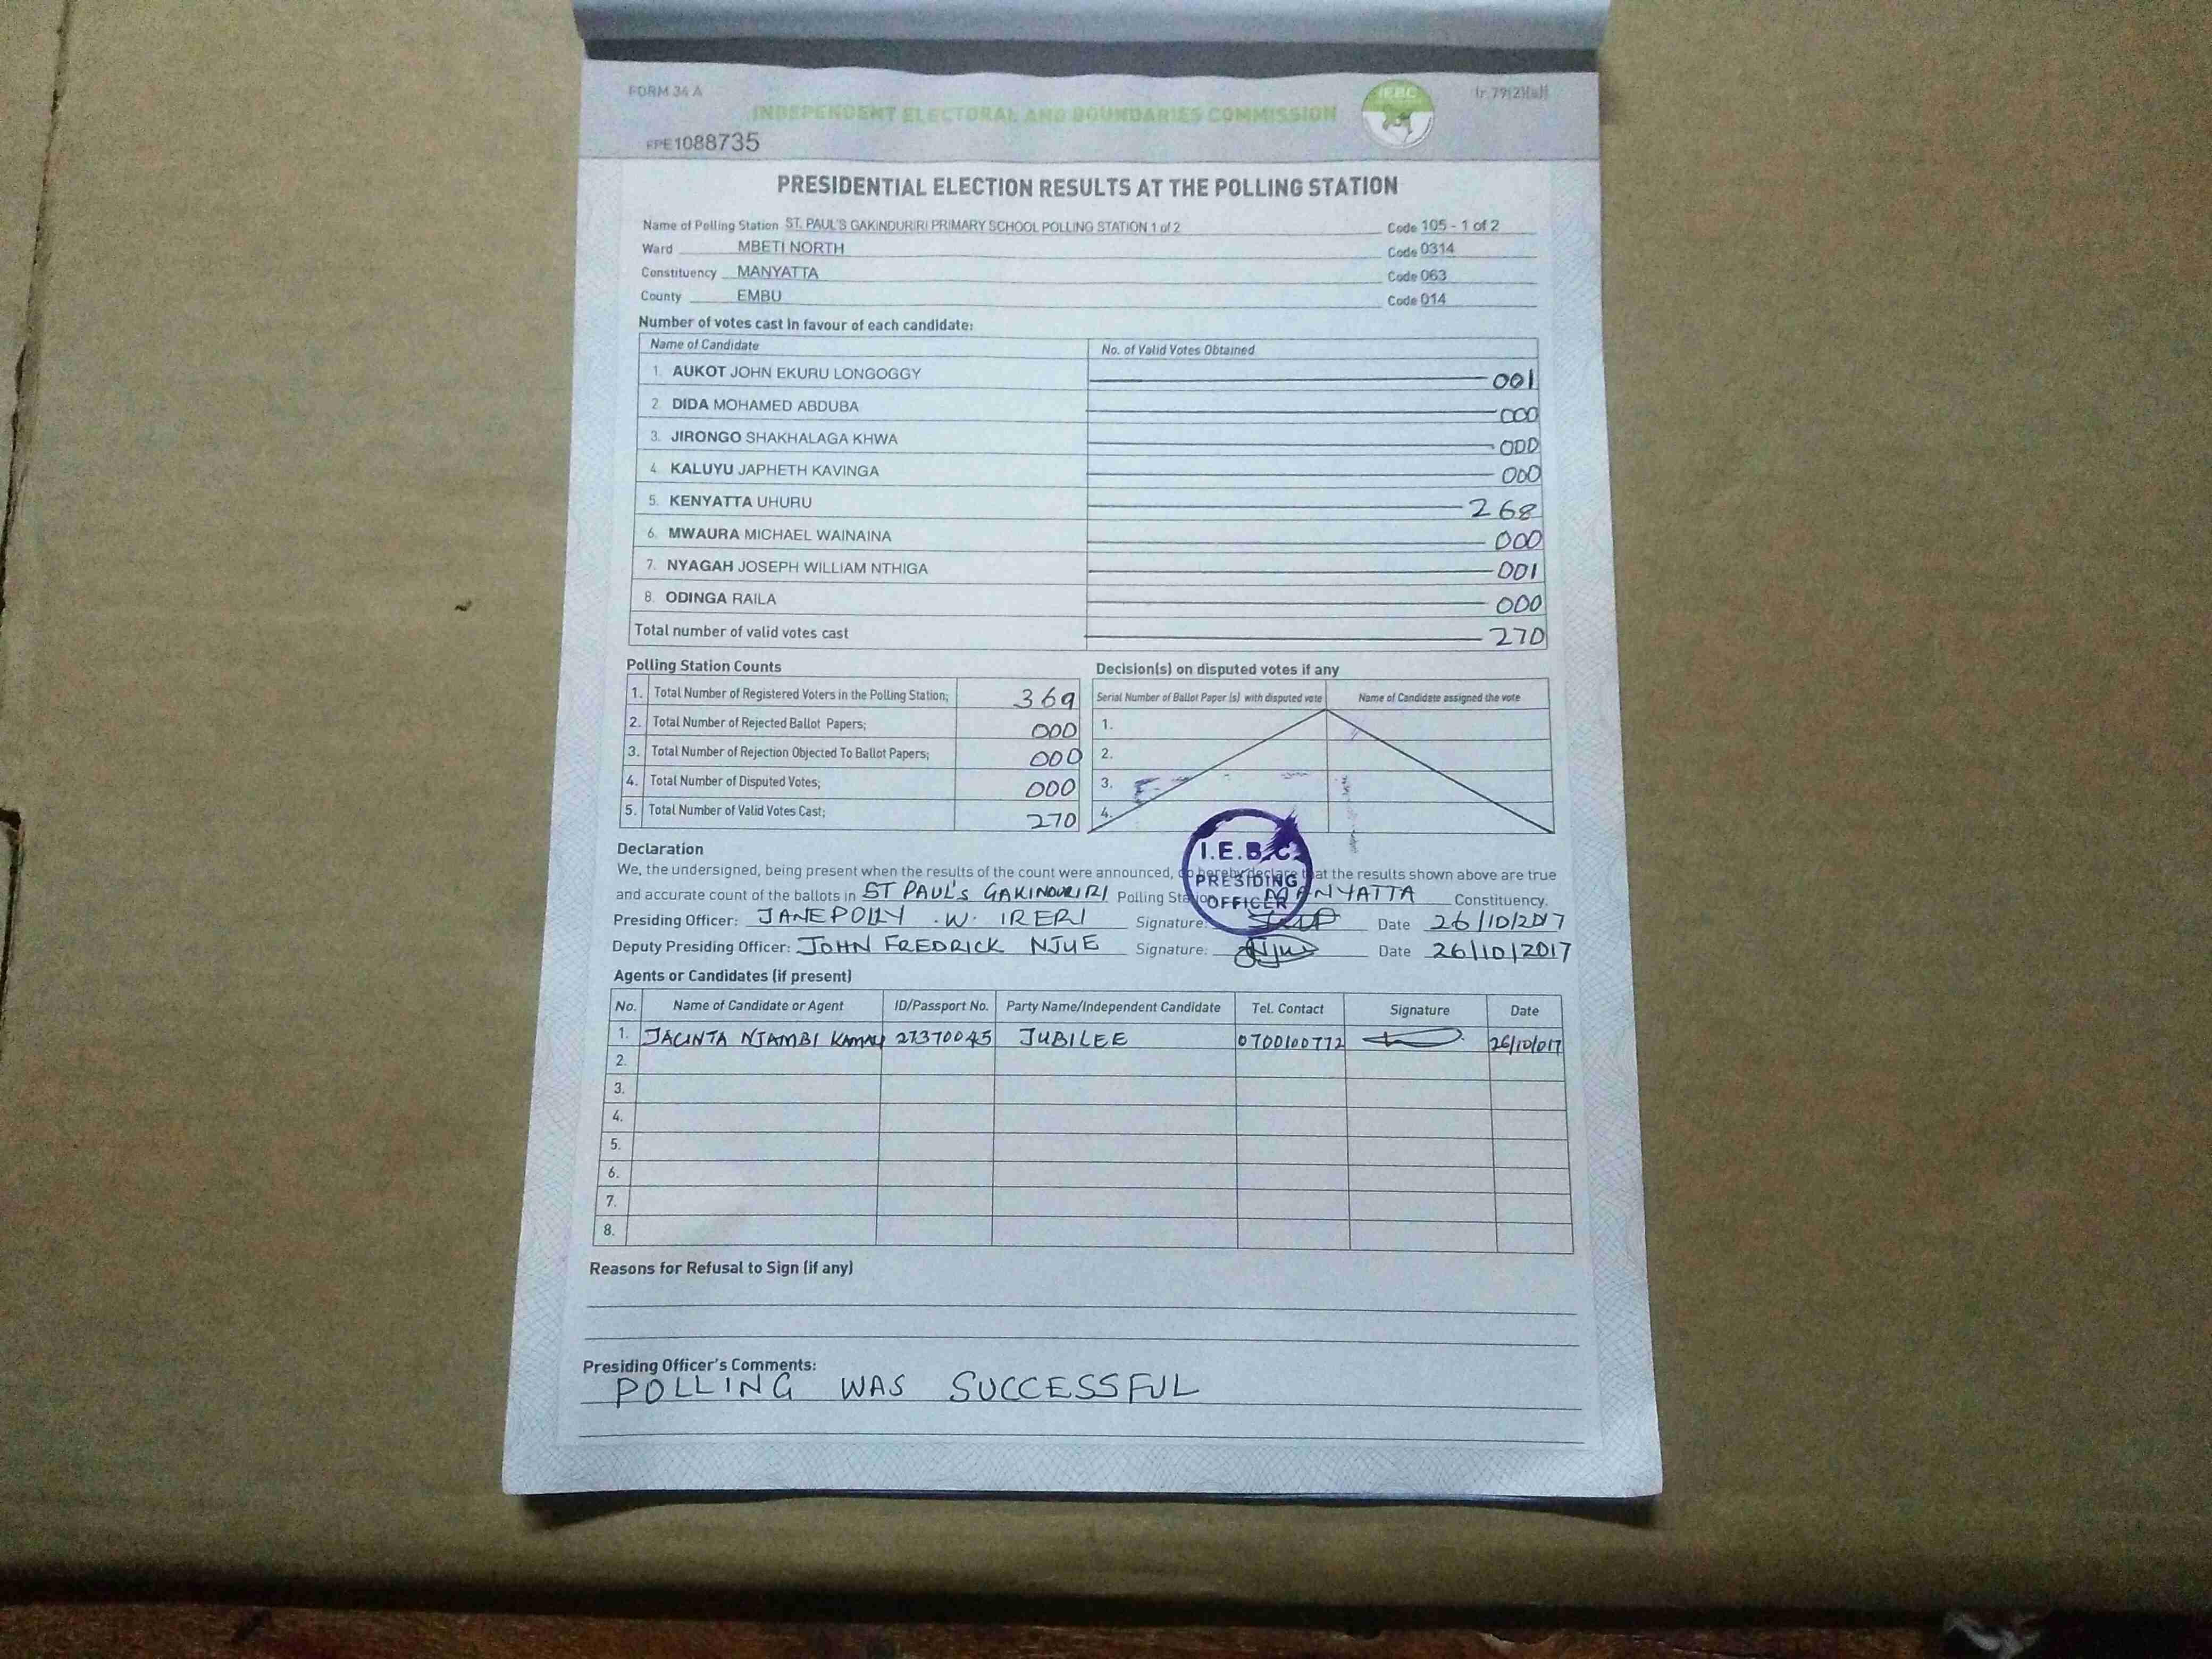 FORM 34 A
INDEPENDENT ELECTORAL AND BOUNDARIES COMMISSION
IEBC
(r. 79(2)(a))
PPE1088735
PRESIDENTIAL ELECTION RESULTS AT THE POLLING STATION
Name of Polling Station ST. PAUL'S GAKINDURIRI PRIMARY SCHOOL POLLING STATION 1 of 2 Code 105 - 1 of 2
Ward MBETI NORTH Code 0314
Constituency MANYATTA Code 063
County EMBU Code 014
Number of votes cast in favour of each candidate:
Name of Candidate No. of Valid Votes Obtained
1. AUKOT JOHN EKURU LONGOGGY 001
2. DIDA MOHAMED ABDUBA 000
3. JIRONGO SHAKHALAGA KHWA 000
4. KALUYU JAPHETH KAVINGA 000
5. KENYATTA UHURU 268
6. MWAURA MICHAEL WAINAINA 000
7. NYAGAH JOSEPH WILLIAM NTHIGA 001
8. ODINGA RAILA 000
Total number of valid votes cast 270
Polling Station Counts
1. Total Number of Registered Voters in the Polling Station; 369
2. Total Number of Rejected Ballot Papers; 000
3. Total Number of Rejection Objected To Ballot Papers; 000
4. Total Number of Disputed Votes; 000
5. Total Number of Valid Votes Cast; 270
Decision(s) on disputed votes if any
Serial Number of Ballot Paper (s) with disputed vote Name of Candidate assigned the vote
1.
2.
3.
4.
I.E.B.C.
PRESIDING
OFFICER
Declaration
We, the undersigned, being present when the results of the count were announced, do hereby declare that the results shown above are true
and accurate count of the ballots in ST PAUL'S GAKINDURIRI Polling Station MANYATTA Constituency.
Presiding Officer: JANEPOLLY .W. IRERI Signature: Date 26/10/2017
Deputy Presiding Officer: JOHN FREDRICK NJUE Signature: Njue Date 26/10/2017
Agents or Candidates (if present)
No. Name of Candidate or Agent ID/Passport No. Party Name/Independent Candidate Tel. Contact Signature Date
1. JACINTA NJAMBI KAMAU 27370045 JUBILEE 0700100772 26/10/017
2.
3.
4.
5.
6.
7.
8.
Reasons for Refusal to Sign (if any)
Presiding Officer's Comments:
POLLING WAS SUCCESSFUL